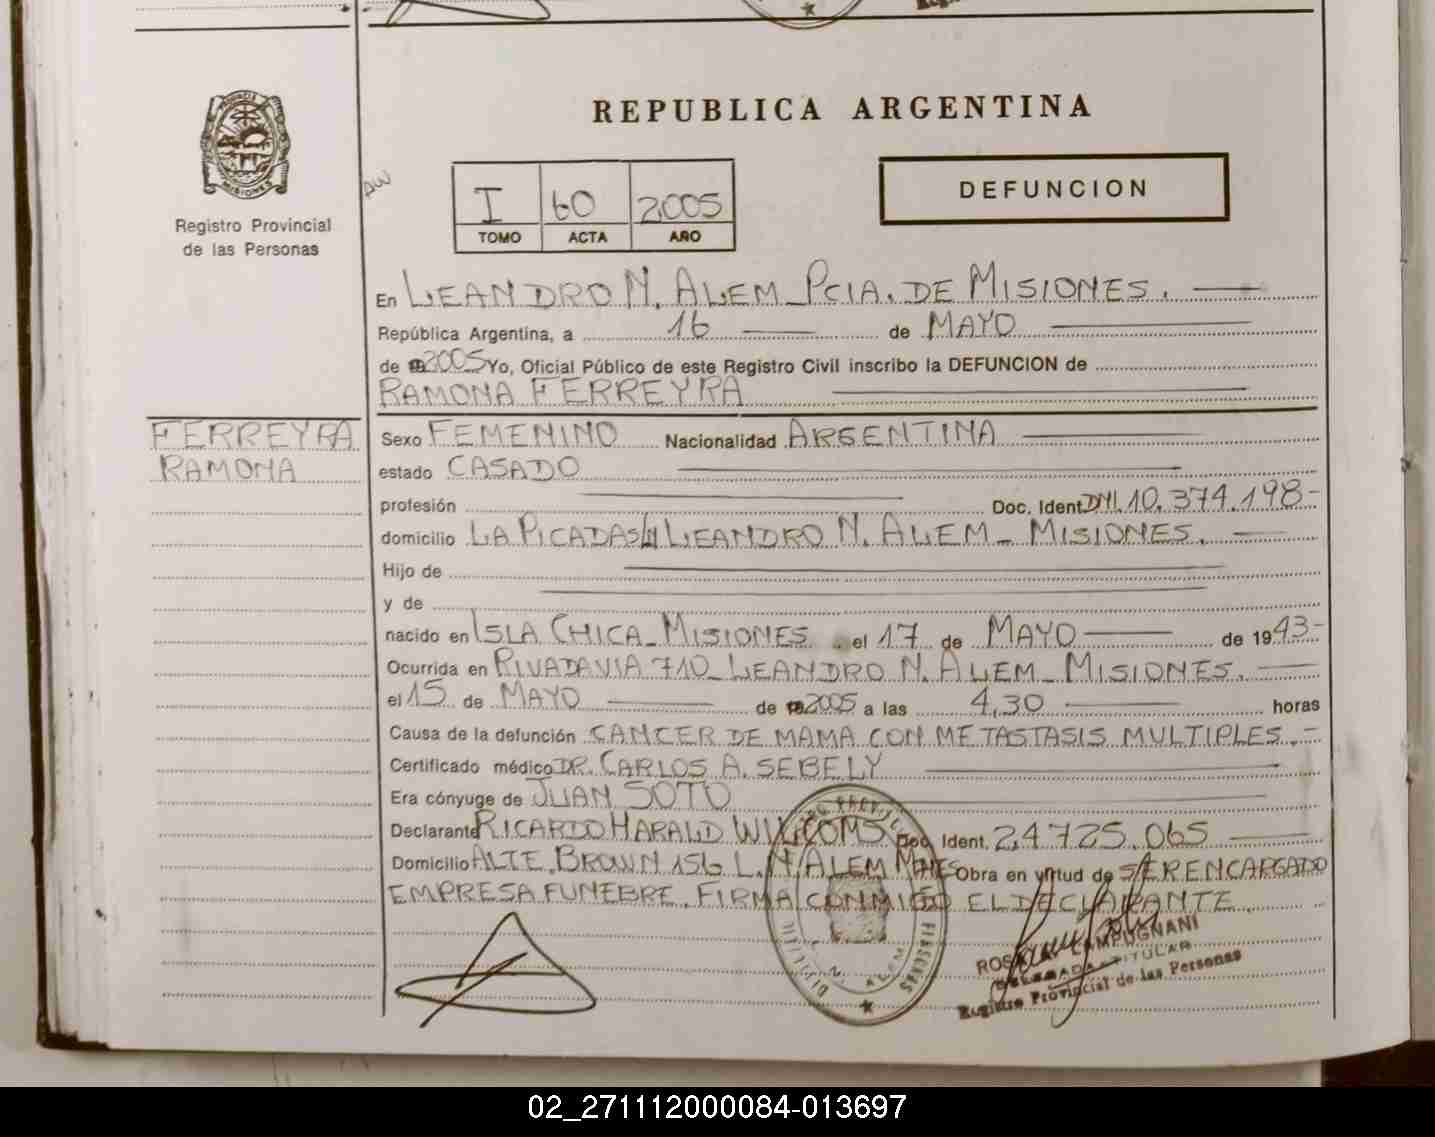 REPUBLICA ARGENTINA
PROVINCIA DE MISIONES
Registro Provincial
de las Personas
I 60 2005
TOMO ACTA AÑO
DEFUNCION
En LEANDRO N. ALEM - PCIA. DE MISIONES.
República Argentina, a 16 de MAYO
de 2005 Yo, Oficial Público de este Registro Civil inscribo la DEFUNCION de
RAMONA FERREYRA
FERREYRA
RAMONA
Sexo FEMENINO Nacionalidad ARGENTINA
estado CASADO
profesión Doc. Ident. DNI. 10.374.198-
domicilio LA PICADA S/N LEANDRO N. ALEM - MISIONES.
Hijo de
y de
nacido en ISLA CHICA - MISIONES el 17 de MAYO de 1943-
Ocurrida en RIVADAVIA 710 - LEANDRO N. ALEM - MISIONES.
el 15 de MAYO de 2005 a las 4,30 horas
Causa de la defunción CANCER DE MAMA CON METASTASIS MULTIPLES.-
Certificado médico DR. CARLOS A. SEBELY
Era cónyuge de JUAN SOTO
Declarante RICARDO HARALD Doc. Ident. 24.725.065
Domicilio ALTE. BROWN 156 L. N. ALEM MNES Obra en virtud de SER ENCARGADO
EMPRESA FUNEBRE. FIRMA CONMIGO EL DECLARANTE.
LAMPUGNANI
DELEGADA TITULAR
Registro Provincial de las Personas
02_271112000084-013697